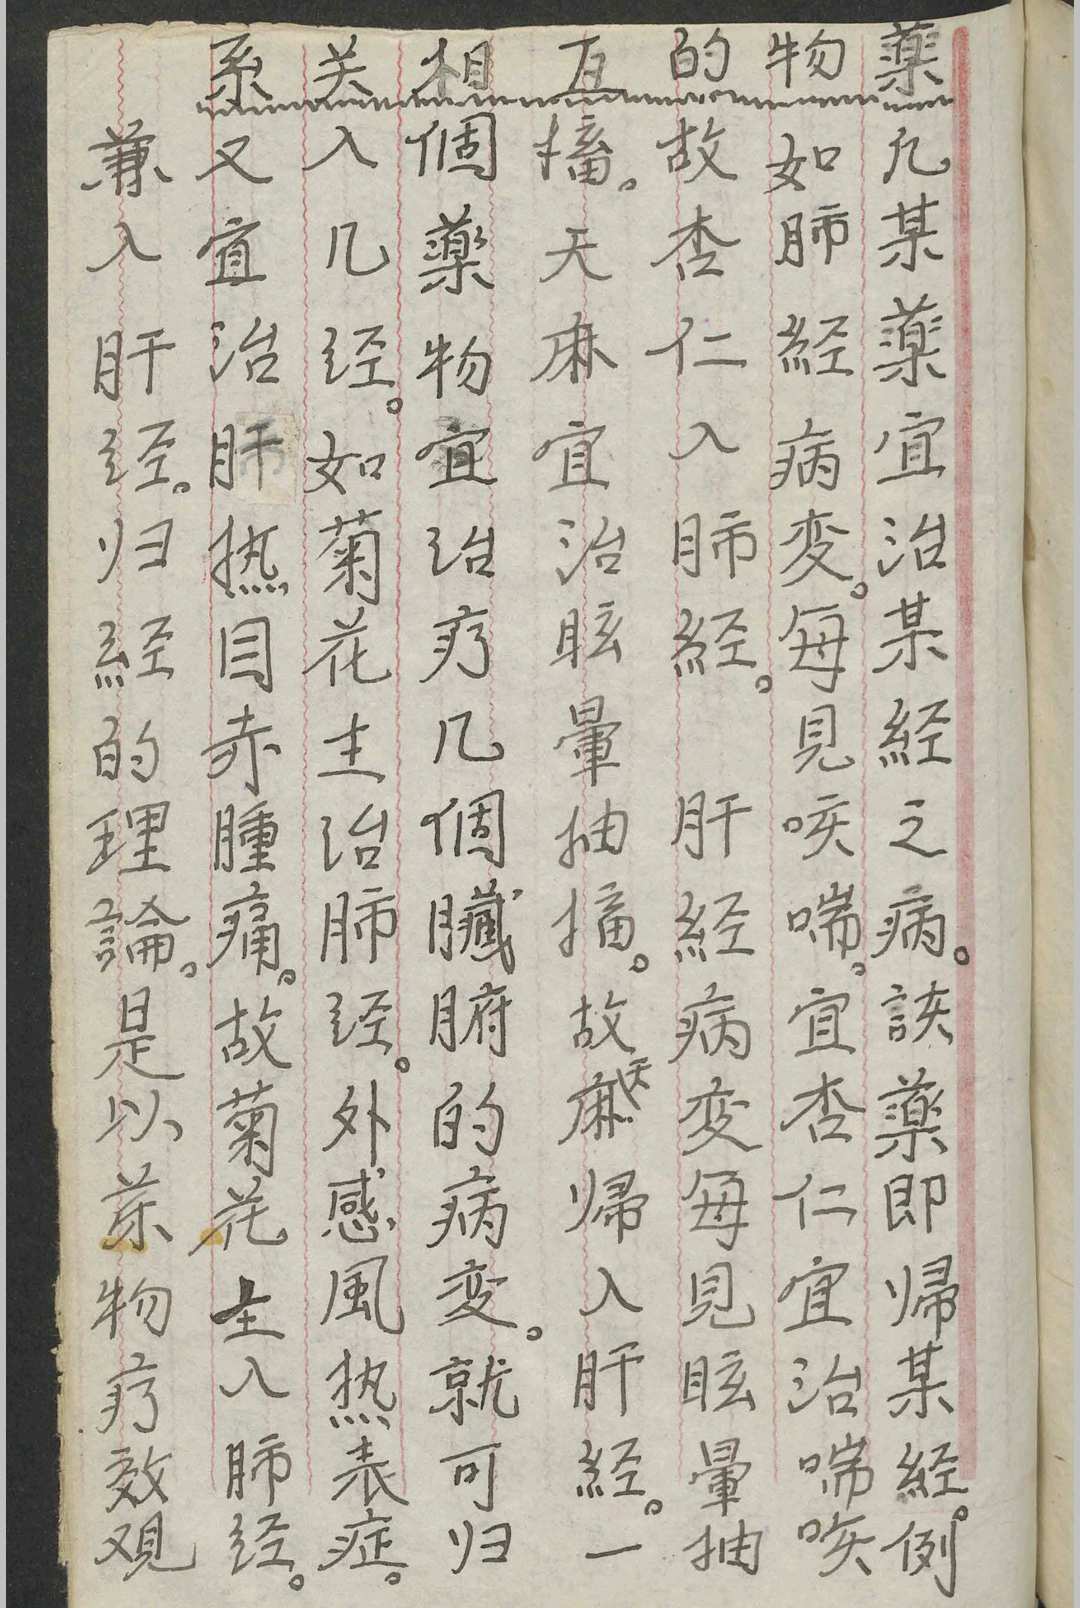 薬物的互相关系
凡某薬宜治某経之病。該薬即帰某経。例
如肺経病变。每見咳喘。宜杏仁宜治喘咳
故杏仁入肺経。 肝経病变每見眩暈抽
搐。天麻宜治眩暈抽搐。故天麻帰入肝経。一
個薬物宜治疗几個臟腑的病变。就可归
入几经。如菊花主治肺经。外感風热表症。
又宜治肝热目赤腫痛。故菊花主入肺经。
兼入肝经。归経的理論。是以药物疗效观